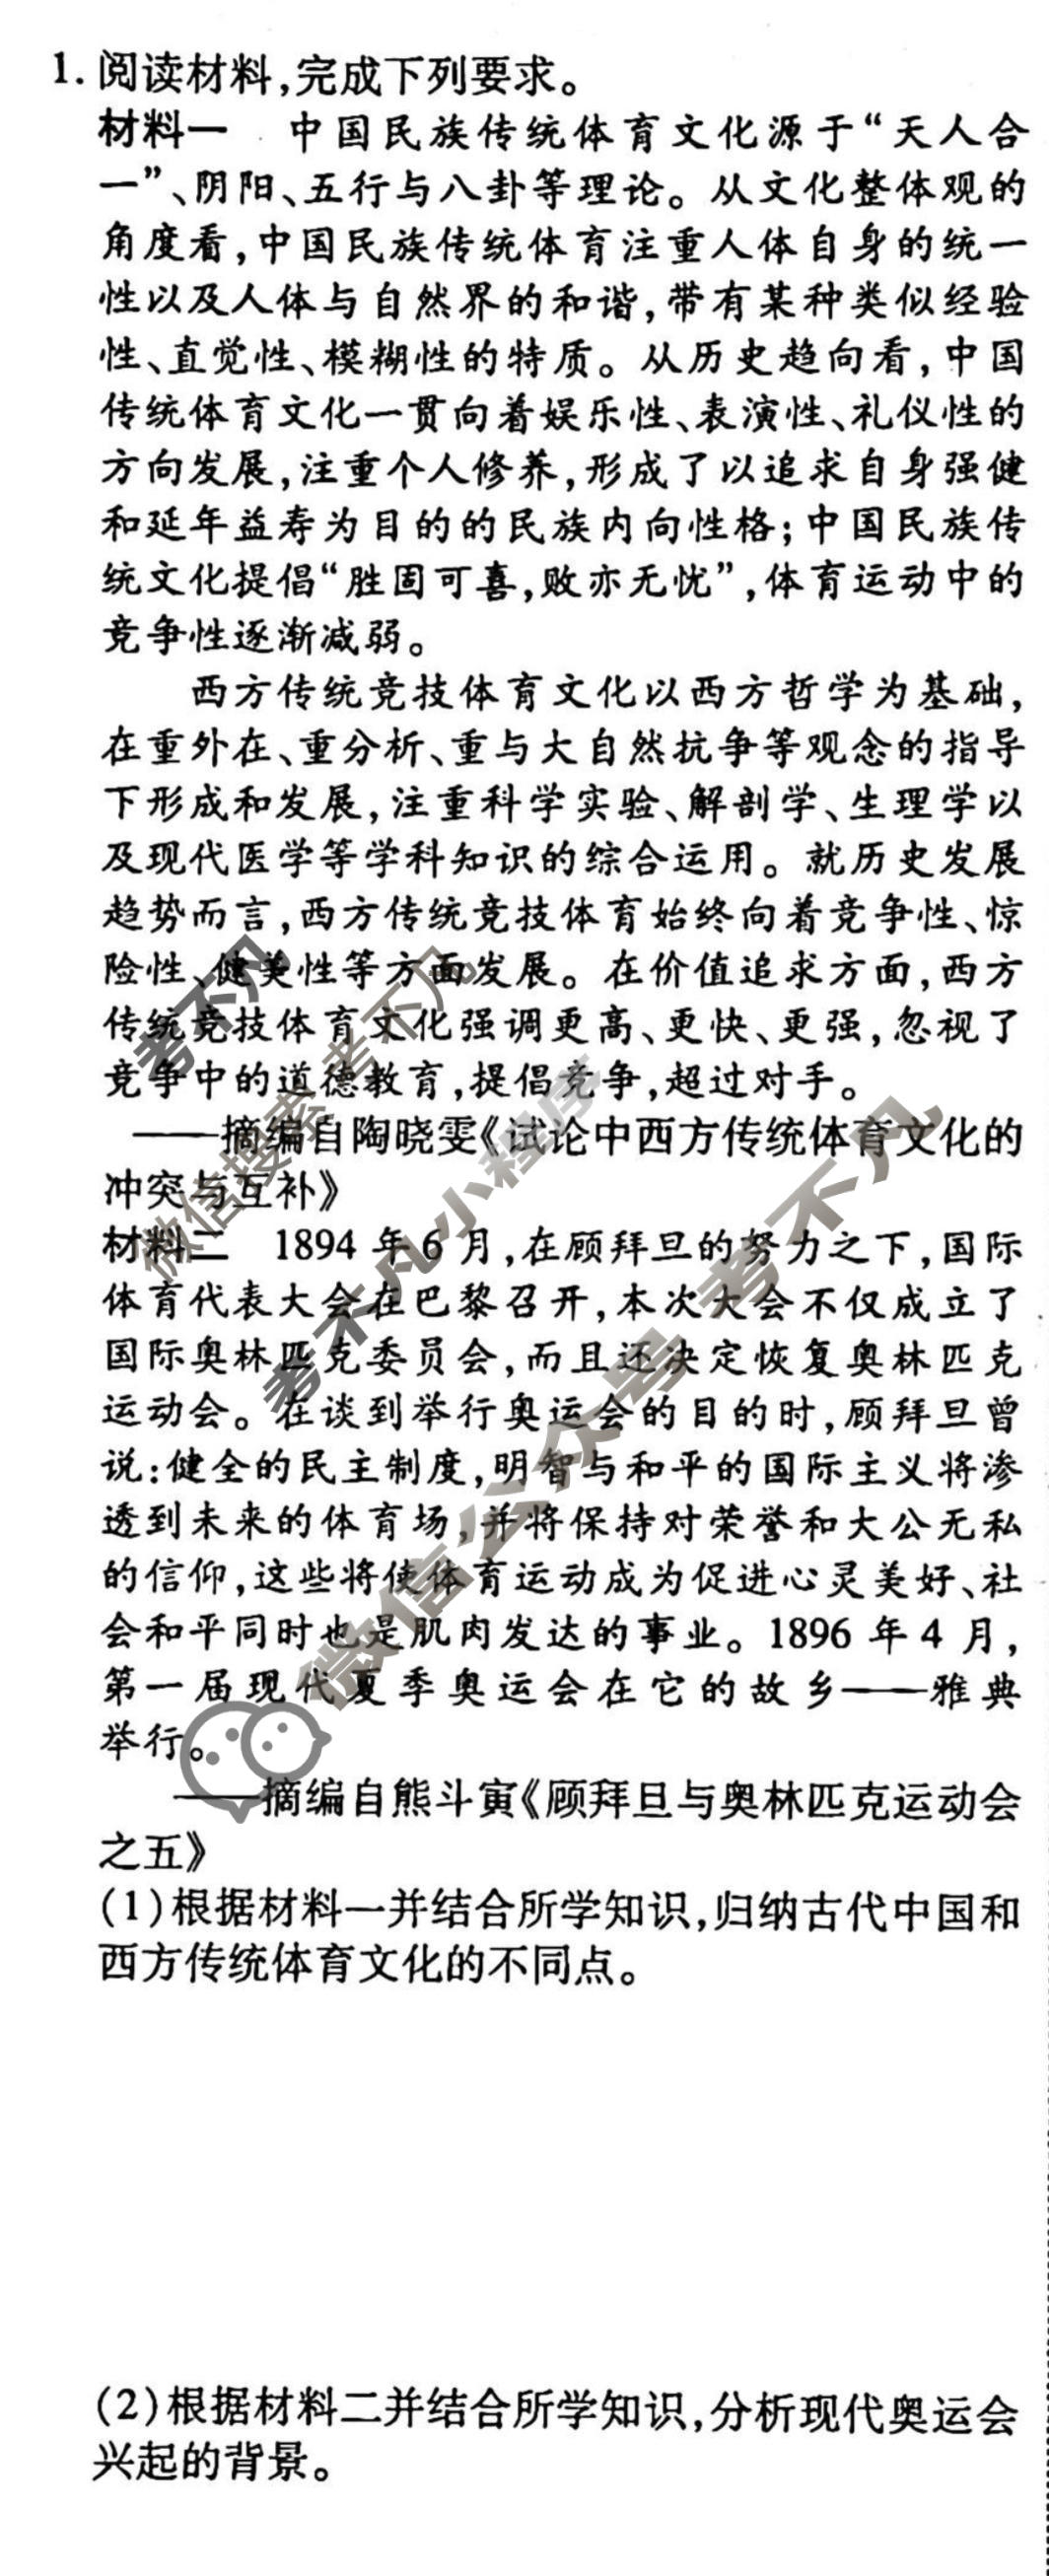 1. 阅读材料,完成下列要求。
材料一 中国民族传统体育文化源于“天人合
一”、阴阳、五行与八卦等理论。从文化整体观的
角度看,中国民族传统体育注重人体自身的统一
性以及人体与自然界的和谐,带有某种类似经验
性、直觉性、模糊性的特质。从历史趋向看,中国
传统体育文化一贯向着娱乐性、表演性、礼仪性的
方向发展,注重个人修养,形成了以追求自身强健
和延年益寿为目的的民族内向性格;中国民族传
统文化提倡“胜固可喜,败亦无忧”,体育运动中的
竞争性逐渐减弱。
西方传统竞技体育文化以西方哲学为基础,
在重外在、重分析、重与大自然抗争等观念的指导
下形成和发展,注重科学实验、解剖学、生理学以
及现代医学等学科知识的综合运用。就历史发展
趋势而言,西方传统竞技体育始终向着竞争性、惊
险性、健美性等方面发展。在价值追求方面,西方
传统竞技体育文化强调更高、更快、更强,忽视了
竞争中的道德教育,提倡竞争,超过对手。
——摘编自陶晓雯《试论中西方传统体育文化的
冲突与互补》
材料二 1894 年 6 月,在顾拜旦的努力之下,国际
体育代表大会在巴黎召开,本次大会不仅成立了
国际奥林匹克委员会,而且还决定恢复奥林匹克
运动会。在谈到举行奥运会的目的时,顾拜旦曾
说:健全的民主制度,明智与和平的国际主义将渗
透到未来的体育场,并将保持对荣誉和大公无私
的信仰,这些将使体育运动成为促进心灵美好、社
会和平同时也是肌肉发达的事业。1896 年 4 月,
第一届现代夏季奥运会在它的故乡——雅典
举行。
——摘编自熊斗寅《顾拜旦与奥林匹克运动会
之五》
(1)根据材料一并结合所学知识,归纳古代中国和
西方传统体育文化的不同点。
(2)根据材料二并结合所学知识,分析现代奥运会
兴起的背景。
考不凡
微信搜索 考不凡
考不凡小程序
微信公众号 考不凡